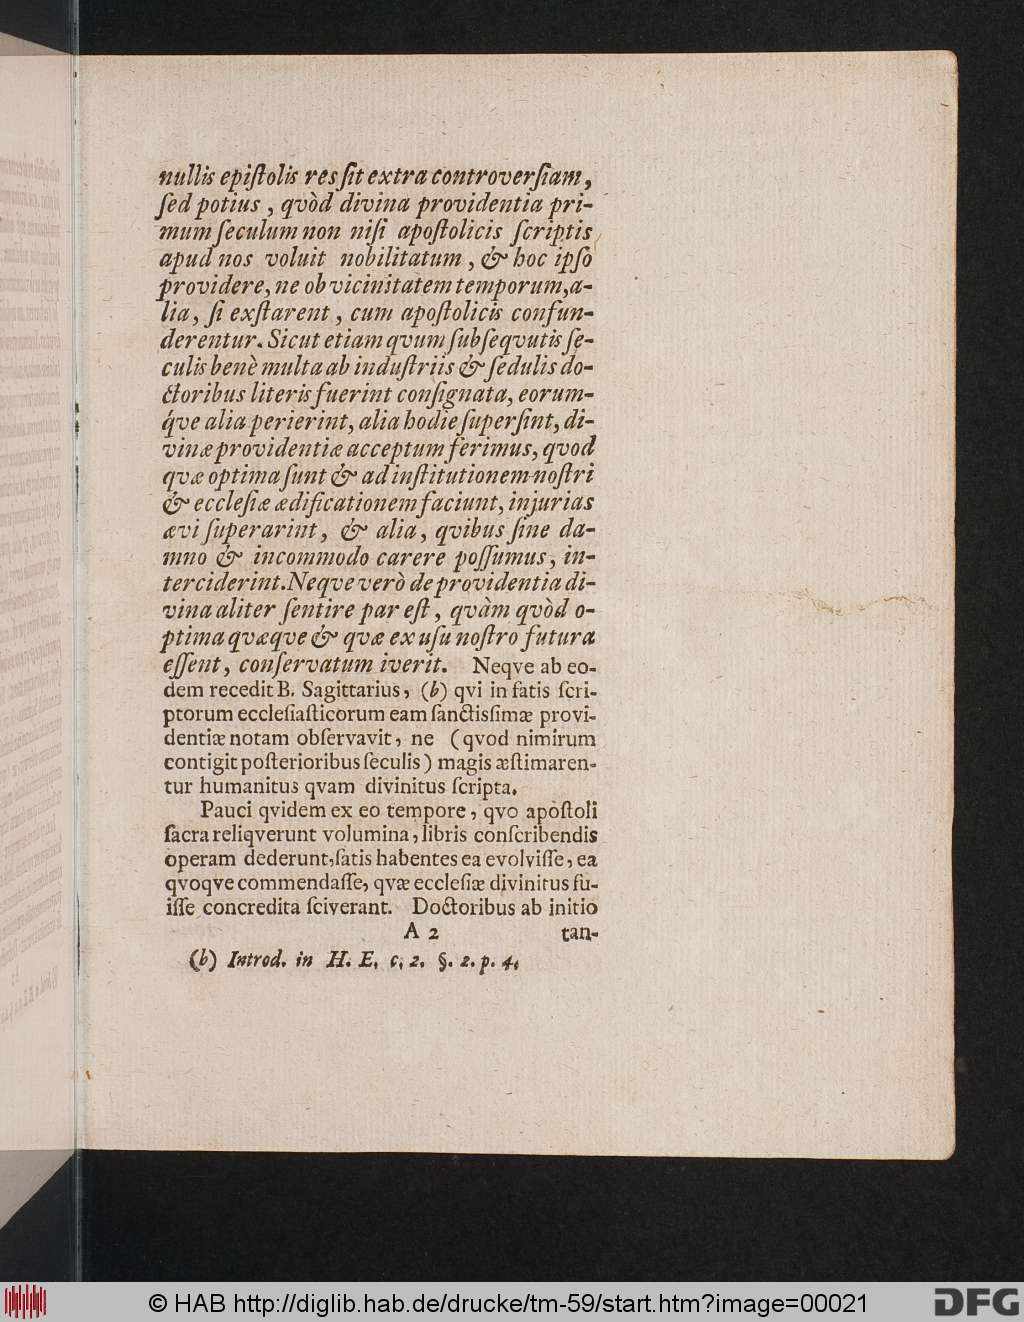 nullis epiſtolis res ſit extra controverſiam,
ſed potius, qvòd divina providentia pri-
mum ſeculum non niſi apoſtolicis ſcriptis
apud nos voluit nobilitatum, & hoc ipſo
providere, ne ob vicinitatem temporum, a-
lia, ſi exſtarent, cum apoſtolicis confun-
derentur. Sicut etiam qvum ſubſeqvutis ſe-
culis benè multa ab induſtriis & ſedulis do-
ctoribus literis fuerint conſignata, eorum-
q́ve alia perierint, alia hodie ſuperſint, di-
vinæ providentiæ acceptum ferimus, qvod
qvæ optima ſunt & ad inſtitutionem noſtri
& eccleſiæ ædificationem faciunt, injurias
ævi ſuperarint, & alia, qvibus ſine da-
mno & incommodo carere poſſumus, in-
terciderint. Neqve verò de providentia di-
vina aliter ſentire par eſt, qvàm qvòd o-
ptima qvæqve & qvæ ex uſu noſtro futura
eſſent, conſervatum iverit. Neqve ab eo-
dem recedit B. Sagittarius, (b) qvi in fatis ſcri-
ptorum eccleſiaſticorum eam ſanctisſimæ provi-
dentiæ notam obſervavit, ne (qvod nimirum
contigit poſterioribus ſeculis) magis æſtimaren-
tur humanitus qvam divinitus ſcripta.
Pauci qvidem ex eo tempore, qvo apoſtoli
ſacra reliqverunt volumina, libris conſcribendis
operam dederunt, ſatis habentes ea evolviſſe, ea
qvoqve commendaſſe, qvæ eccleſiæ divinitus fu-
iſſe concredita ſciverant. Doctoribus ab initio
A 2 tan-
(b) Introd. in H. E. c. 2. §. 2. p. 4.
© HAB http://diglib.hab.de/drucke/tm-59/start.htm?image=00021
DFG